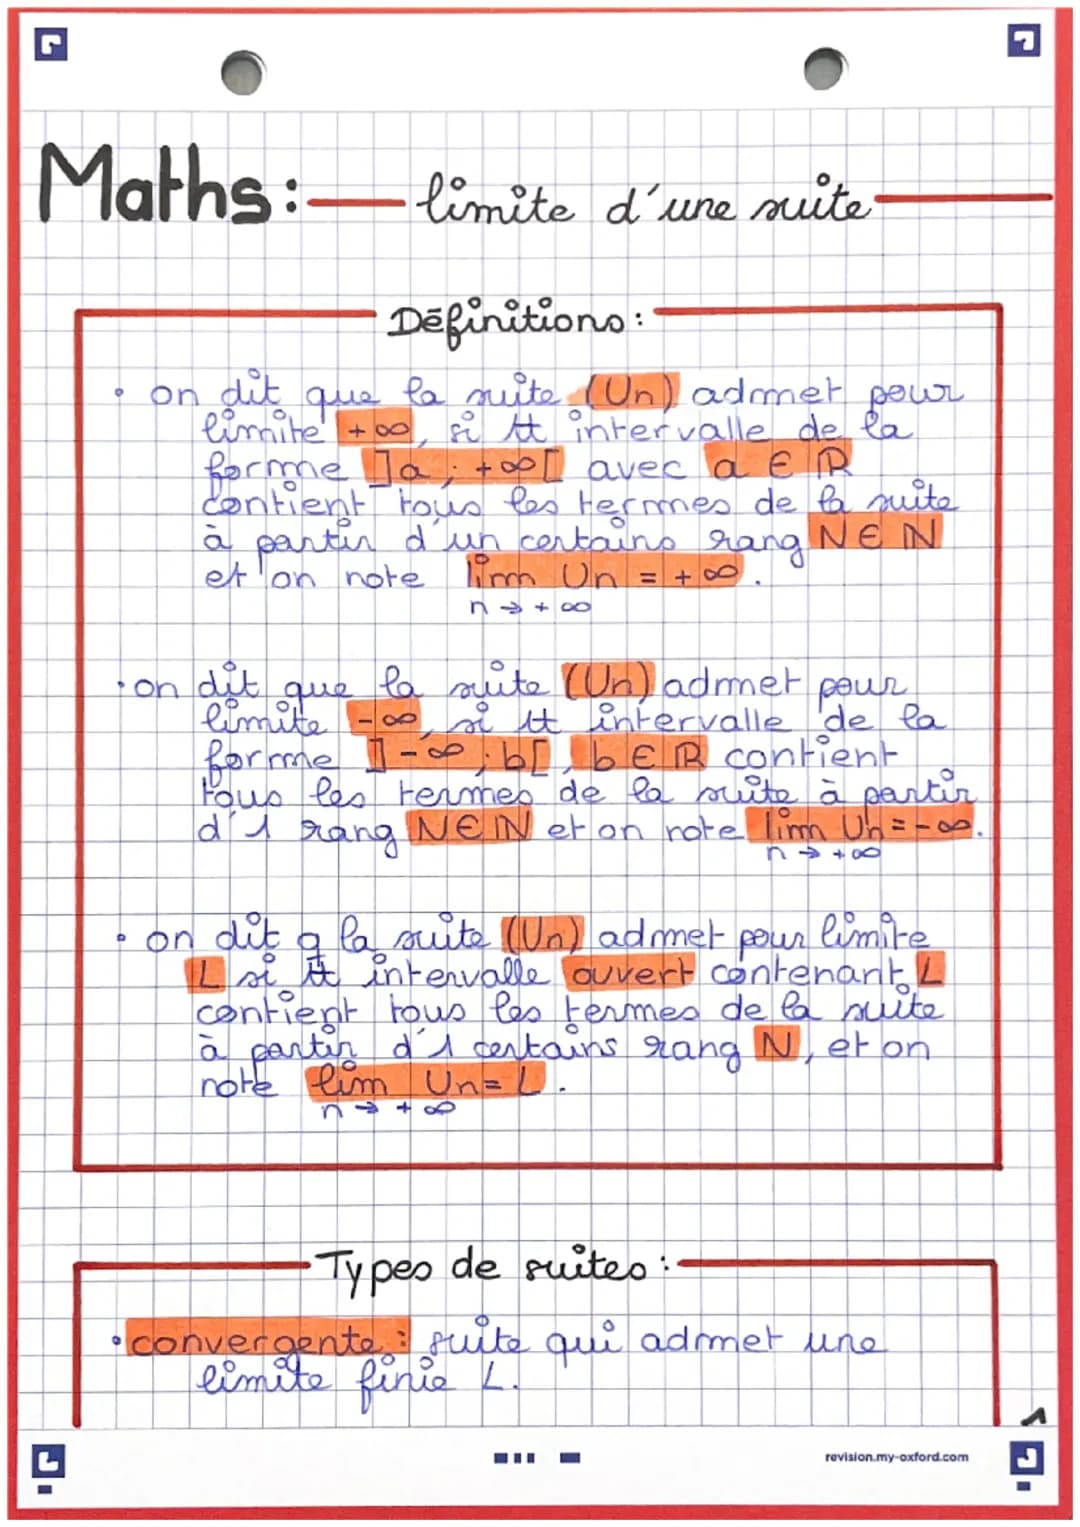 Maths: limite d'une suite
Définitions:
• on dit que la suite (Un) admet pour
limite +∞, si tt intervalle de la
forme ]a ; +∞[ avec a ∈ ℝ
contient tous les termes de la suite
à partir d'un certains rang N ∈ ℕ
et on note lim Un = +∞.
n → +∞
• on dit que la suite (Un) admet pour
limite -∞, si tt intervalle de la
forme ]-∞ ; b[, b ∈ ℝ contient
tous les termes de la suite à partir
d'1 rang N ∈ ℕ et on note lim Un = -∞.
n → +∞
• on dit q la suite (Un) admet pour limite
L si tt intervalle ouvert contenant L
contient tous les termes de la suite
à partir d'1 certains rang N, et on
note lim Un = L.
n → +∞
Types de suites:
• convergente : suite qui admet une
limite finie L.
1
revision.my-oxford.com